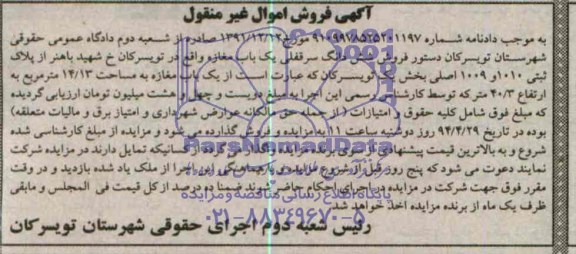 آگهی فروش اموال غیر منقول
به موجب دادنامه شماره ۹۱۰۹۹۷۸۵۲۵۲۰۱۱۹۷ مورخ ۱۳۹۱/۱۲/۲۲ صادره از شعبه دوم دادگاه عمومی حقوقی
شهرستان تویسرکان دستور فروش شش دانگ سرقفلی یک باب مغازه واقع در تویسرکان خ شهید باهنر از پلاک
ثبتی ۱۰۱۰ و ۱۰۰۹ اصلی بخش یک تویسرکان که عبارت است از یک باب مغازه به مساحت ۱۴/۱۳ مترمربع به
ارتفاع ۴۰/۳ متر که توسط کارشناس رسمی این اجرا به مبلغ دویست و چهل و هشت میلیون تومان ارزیابی گردیده
که مبلغ فوق شامل کلیه حقوق و امتیازات ( از جمله حق مالکانه عوارض شهرداری و امتیاز برق و مالیات متعلقه)
بوده در تاریخ ۹۴/۴/۲۹ روز دوشنبه ساعت ۱۱ به مزایده و فروش گذارده می شود و مزایده از مبلغ کارشناسی شده
شروع و به بالاترین قیمت پیشنهادی از سوی برنده مزایده واگذار می گردد. کسانیکه تمایل دارند در مزایده شرکت
نمایند دعوت می شود که پنج روز قبل از شروع مزایده با هماهنگی این اجرا از ملک یاد شده بازدید و در وقت
مقرر فوق جهت شرکت در مزایده در اجرای احکام حاضر شوند ضمنا ده درصد از کل قیمت فی المجلس و مابقی
ظرف یک ماه از برنده مزایده اخذ خواهد شد.
رئیس شعبه دوم اجرای حقوقی شهرستان تویسرکان
ParsNamadData
پایگاه اطلاع رسانی مناقصه و مزایده
۰۲۱-۸۸۳۴۹۶۷۰-۵